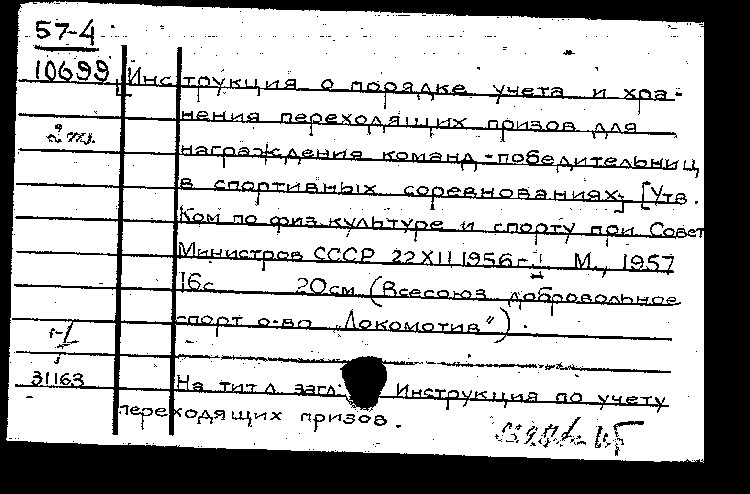 57-4
10699 [Инструкция о порядке учета и хра-
нения переходящих призов для
2 экз.
награждения команд-победительниц
в спортивных соревнованиях] [Утв.
Ком по физ культуре и спорту при Совет
Министров СССР 22 XII 1956 г.] М., 1957
16с 20см (Всесоюз добровольное
спорт о-во „Локомотив").
г-1
31163 На тит л. загл: Инструкция по учету
переходящих призов.